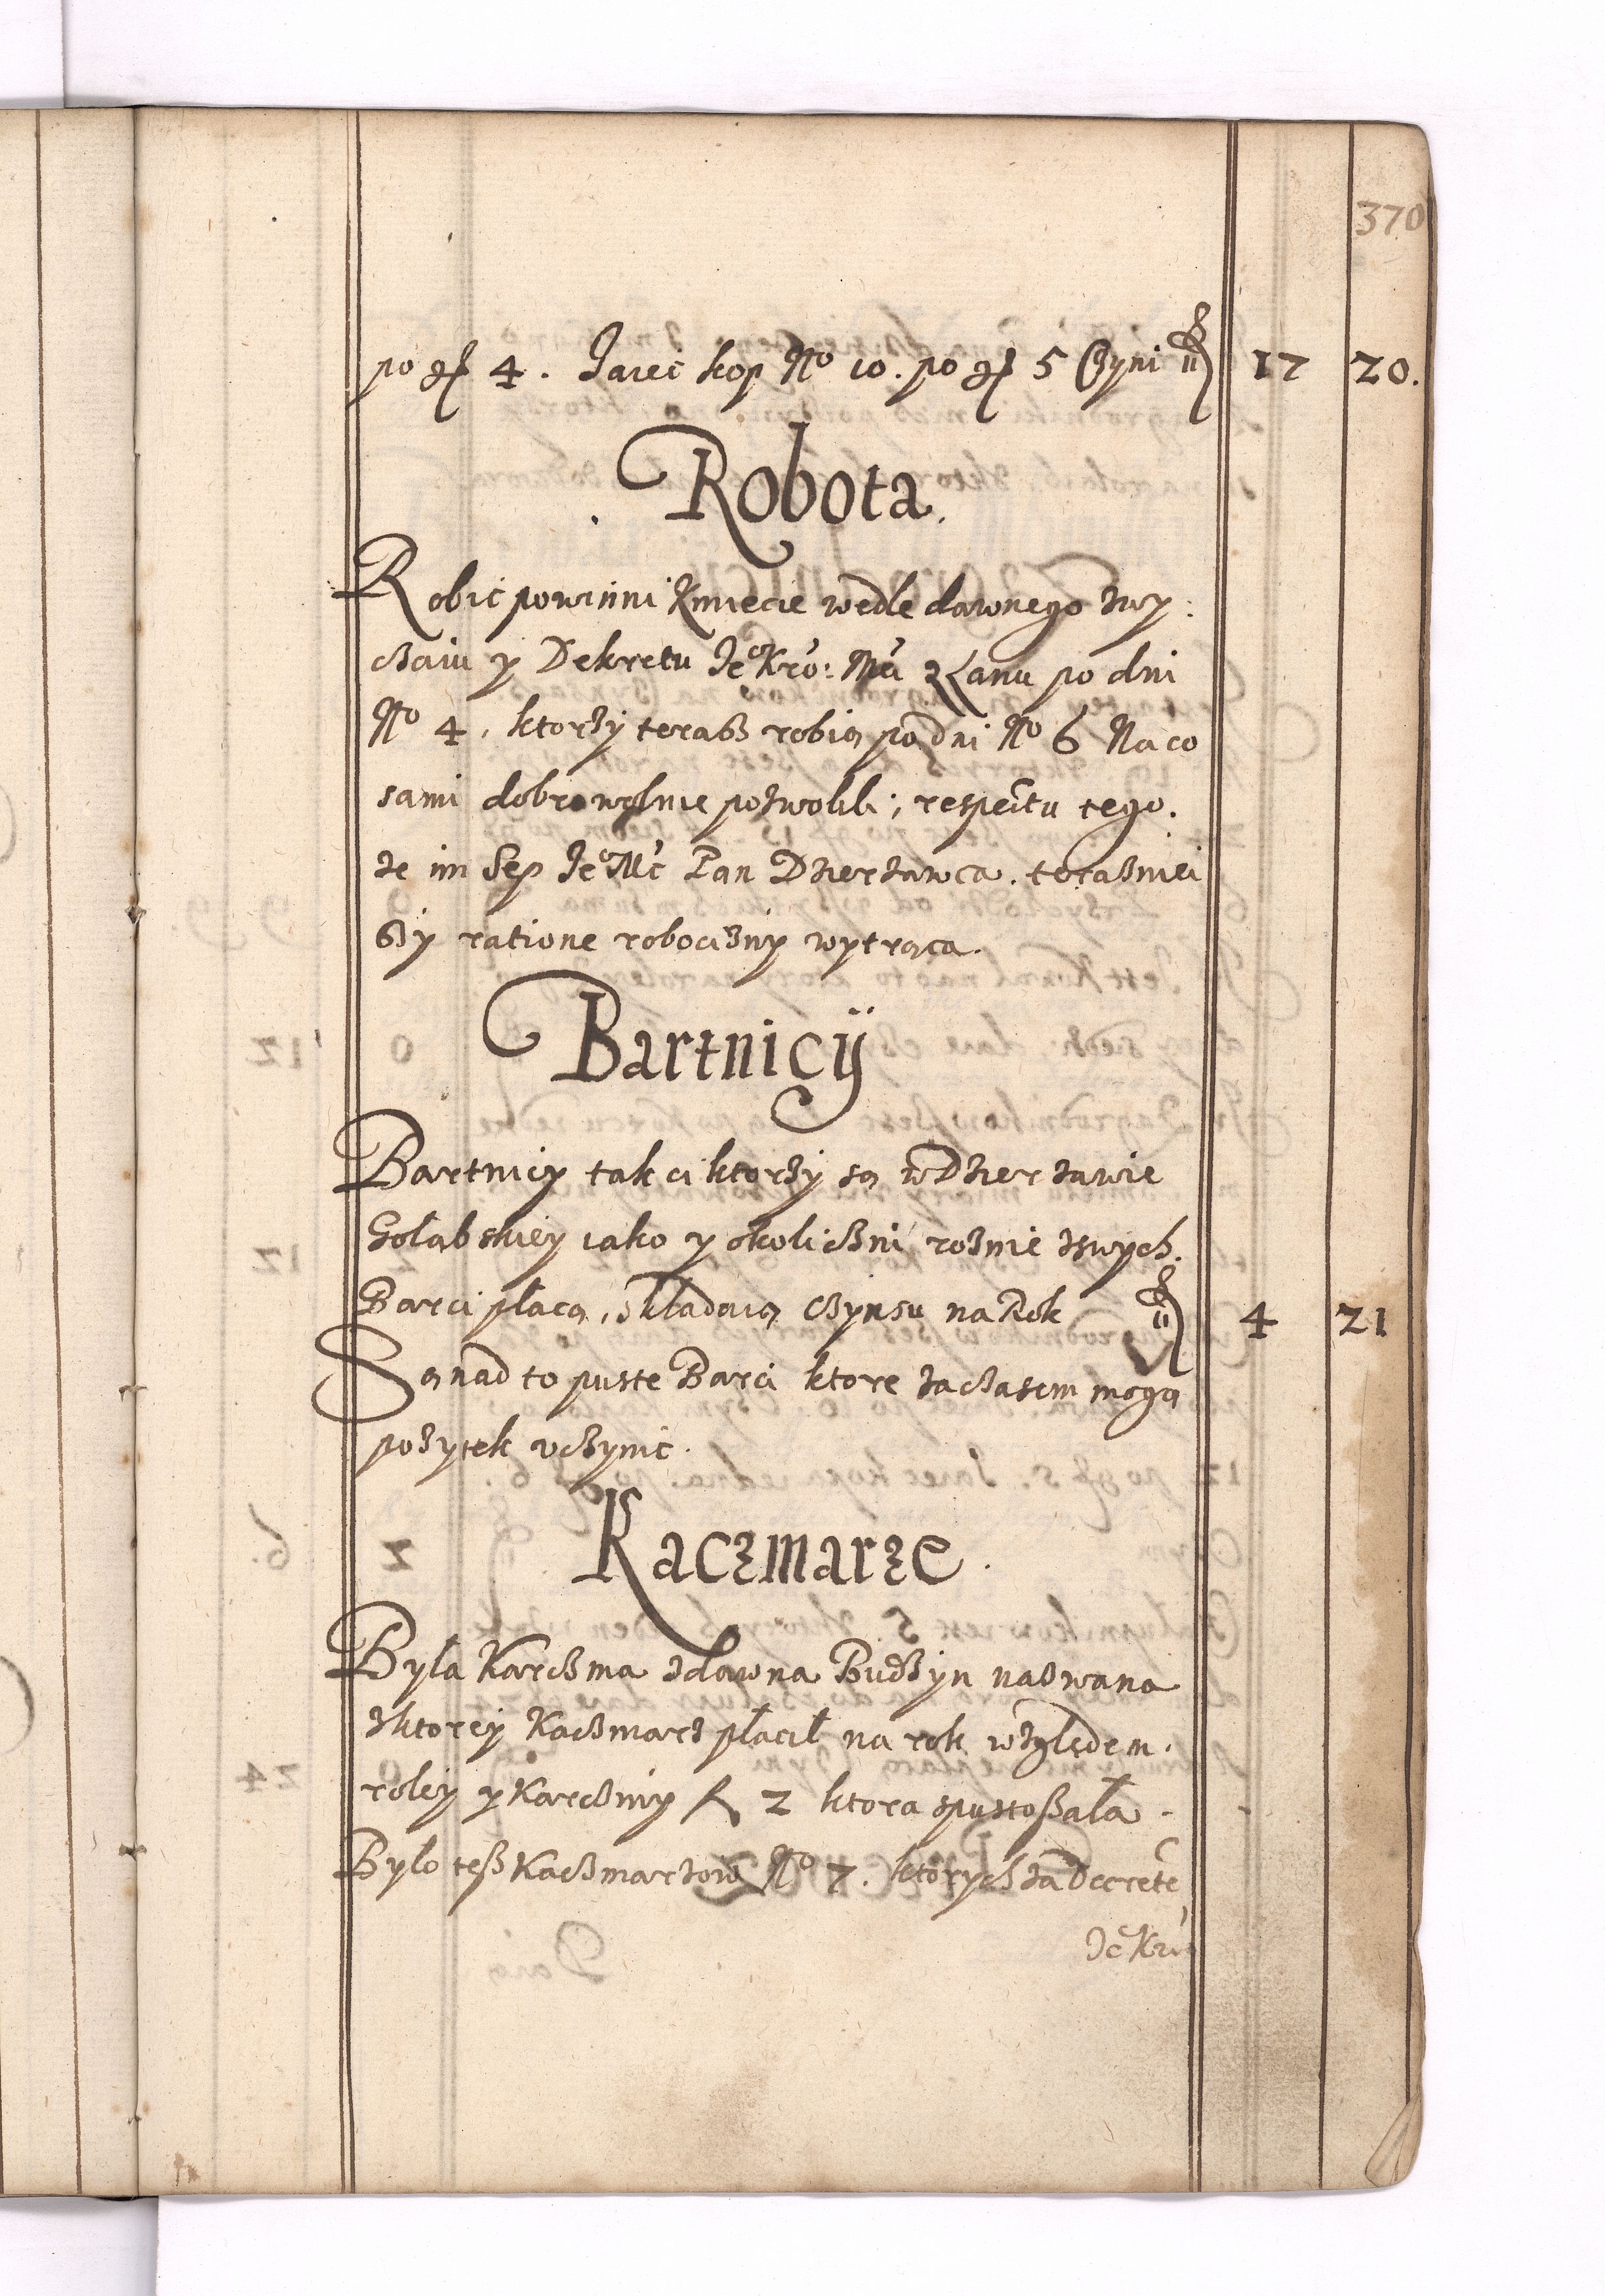 370
po gr 4. Jaiec kop No 10. po gr 5 Czyni 17 20.
Robota.
Robic powinni Kmiecie wedle dawnego zwy:
czaiu y Dekretu Jeo Kro: Mci z Łanu po dni
No 4, ktorzy teraz robią po dni No 6 Na co
sami dobrowolnie pozwolili; respectu tego.
że im Sep Jeo Mc Pan Dzierżawca. terazniei
szy ratione robocizny wytrąca.
Bartnicÿ
Bartnicy tak ci ktorzy są w Dzierżawie
Gołąbskiey iako y okoliczni roznie zswych.
Barci płacą, składaią Czynsu na Rok 4 21
Są nad to puste Barci ktore zaczasem mogą
pozytek vczynic.
Kaczmarze.
Była Karczma zdawna Budzyn nazwana
zktorey Kaczmarz płacił na rok względem.
roley y Karczmy f 2 ktora spustoszała. -
Było tesz Kaczmarzow No 7. ktorych za Decrete
Jeo Kró